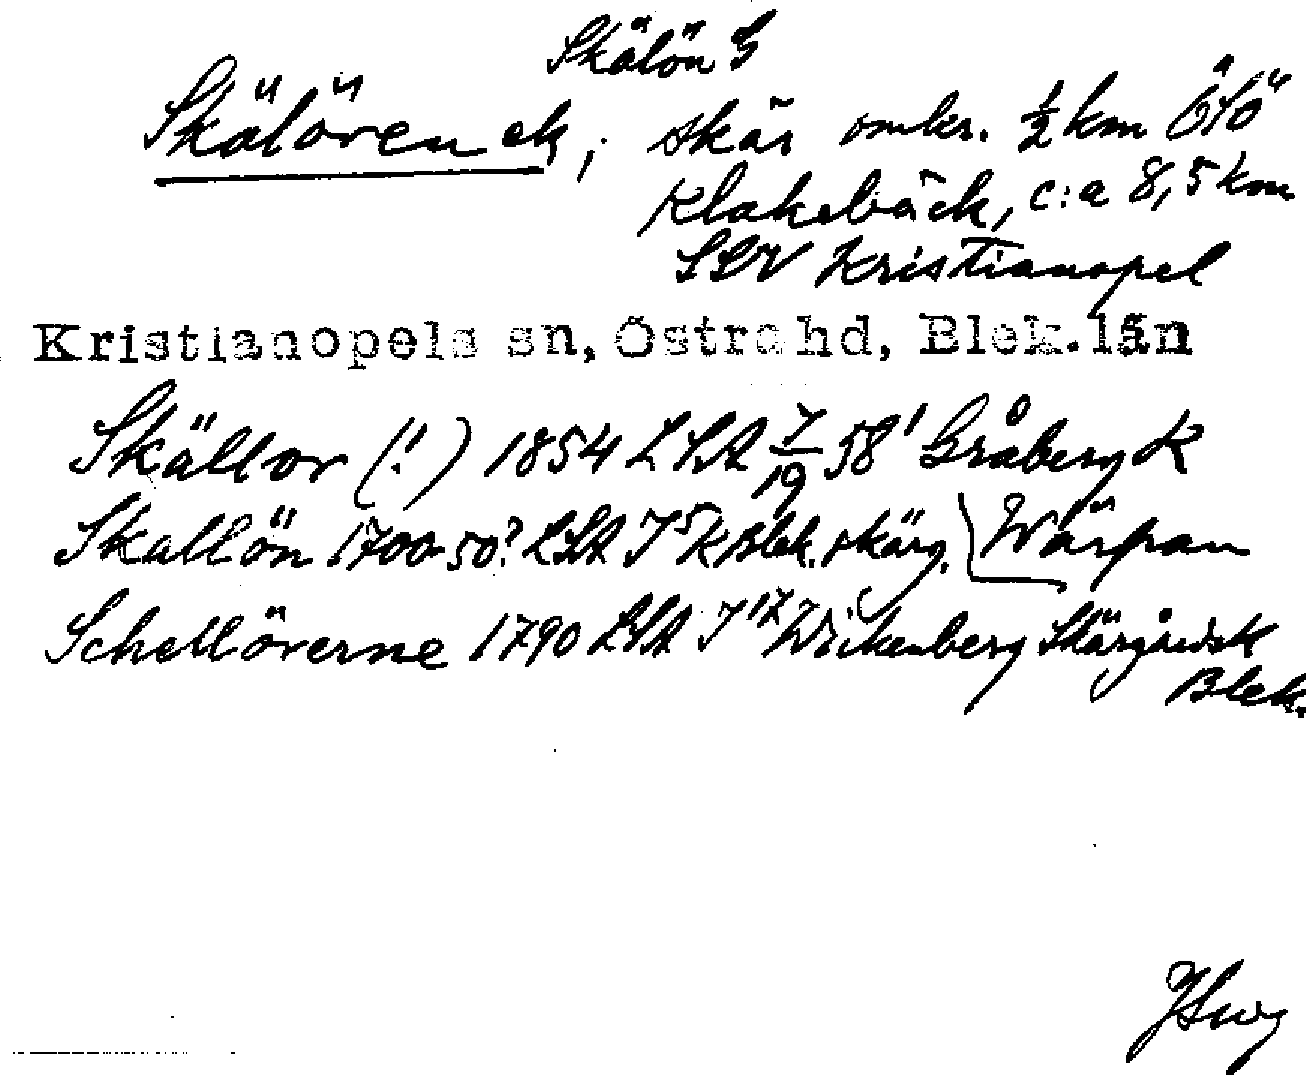 Skälön G
Skälören ek, skär omkr. ½ km ÖSÖ
Klakebäck, c:a 8,5 km
SSV Kristianopel
Kristianopels sn, Östra hd, Blek. län
Skällor (!) 1854 LSA 7/19 58' Gråberg K
Skallön 1700-50? LSA J5 K Blek. skärg. Wärpan
Schellörerne 1790 LSA J17 Wickenberg Skärgårdsk
Blek.